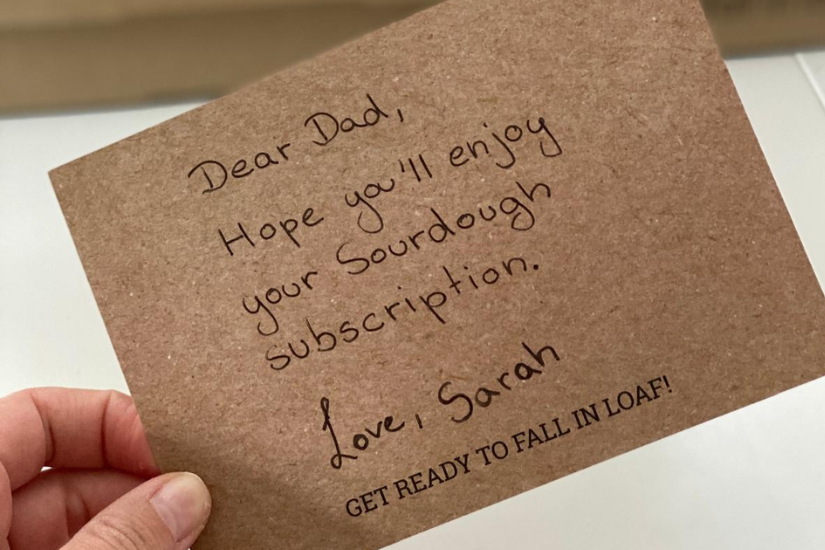 Dear Dad,
Hope you'll enjoy
your Sourdough
subscription.
Love, Sarah
GET READY TO FALL IN LOAF!